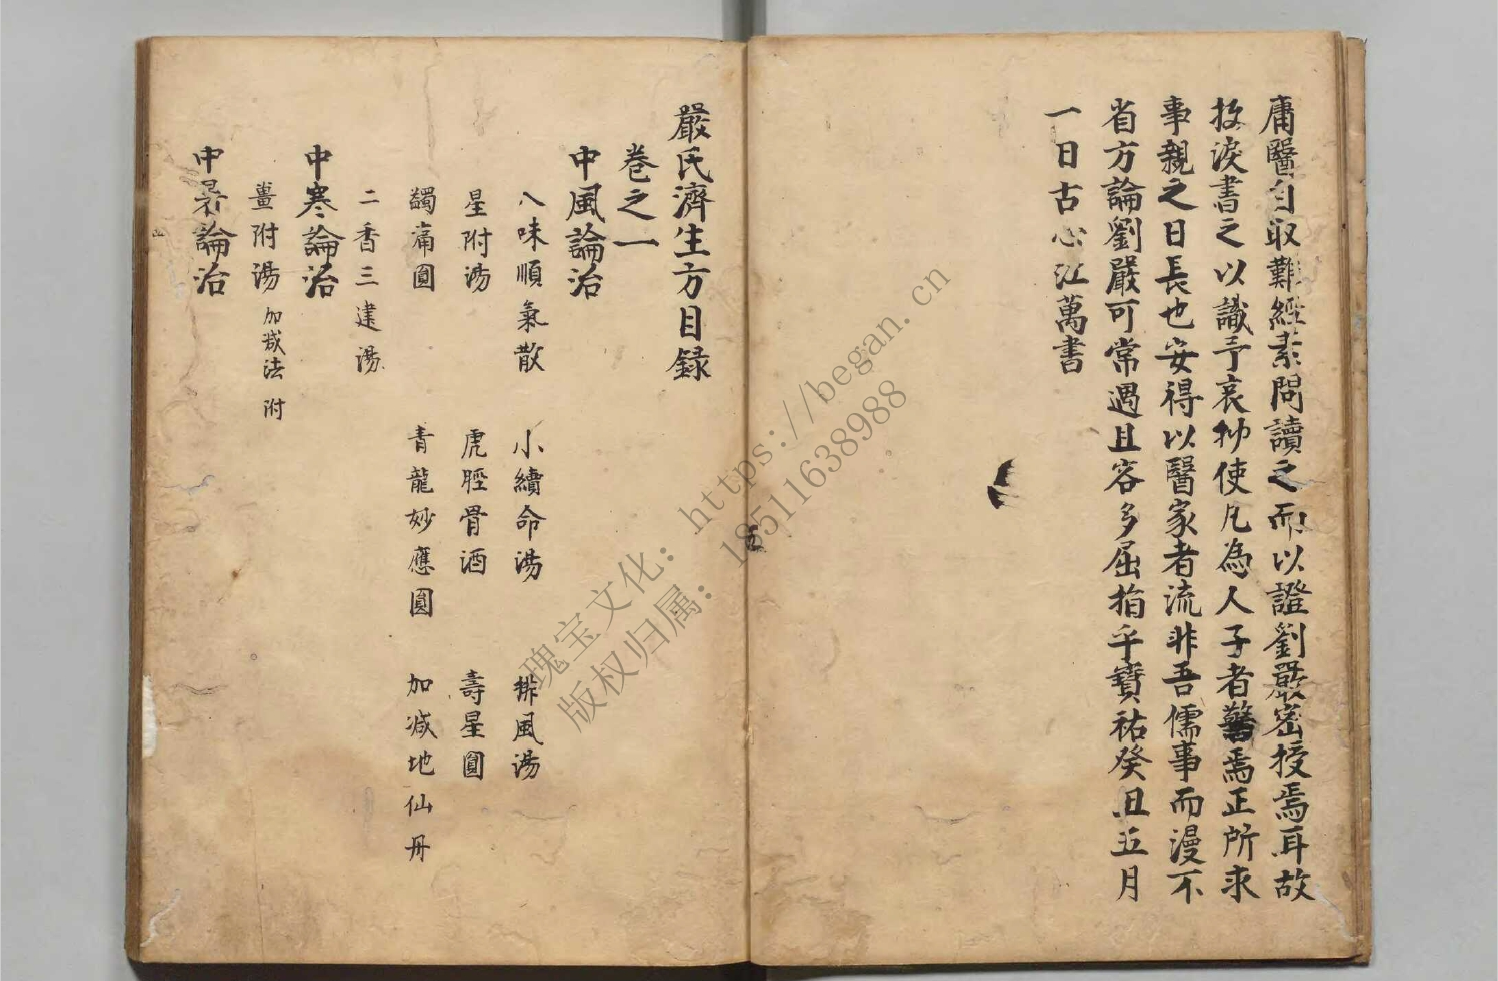 庸醫自取難經素問讀之而以證劉嚴密授焉耳故
投淚書之以識予哀抑使凡為人子者警焉正所求
事親之日長也安得以醫家者流非吾儒事而漫不
省方論劉嚴可常遇且容多屈指乎寶祐癸丑五月
一日古心江萬書
嚴氏濟生方目錄
卷之一
中風論治
八味順氣散 小續命湯 排風湯
星附湯 虎脛骨酒 壽星圓
蠲痛圓 青龍妙應圓 加减地仙丹
二香三建湯
中寒論治
薑附湯 加减法附
中暑論治
瑰宝文化：https://began.cn
版权归属：18511638988